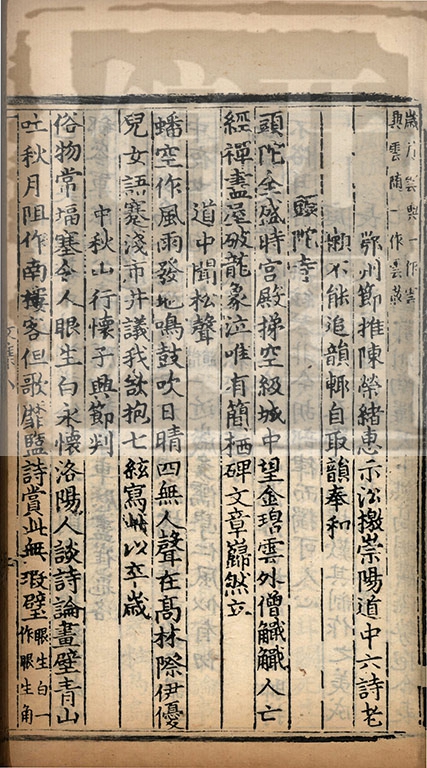 歲方雲與一作雲
與雲隨一作雲發
鄂州節推陳榮緒惠示㳂檄崇陽道中六詩老
嬾不能追韻輒自取韻奉和
頭陀寺
頭陀全盛時宮殿梯空級城中望金碧雲外僧䑎䑎人亡
經禪盡屋破龍象泣唯有簡栖碑文章巋然立
道中聞松聲
蟠空作風雨發地鳴鼓吹日晴四無人聲在髙林際伊優
兒女語蹇淺市井議我欲抱七絃寫此以卒歳
中秋山行懷子興節判
俗物常塥塞令人眼生白永懷洛陽人談詩論畫壁青山
吐秋月阻作南樓客但歌靡盬詩賞此無瑕璧眼生白一作眼生角